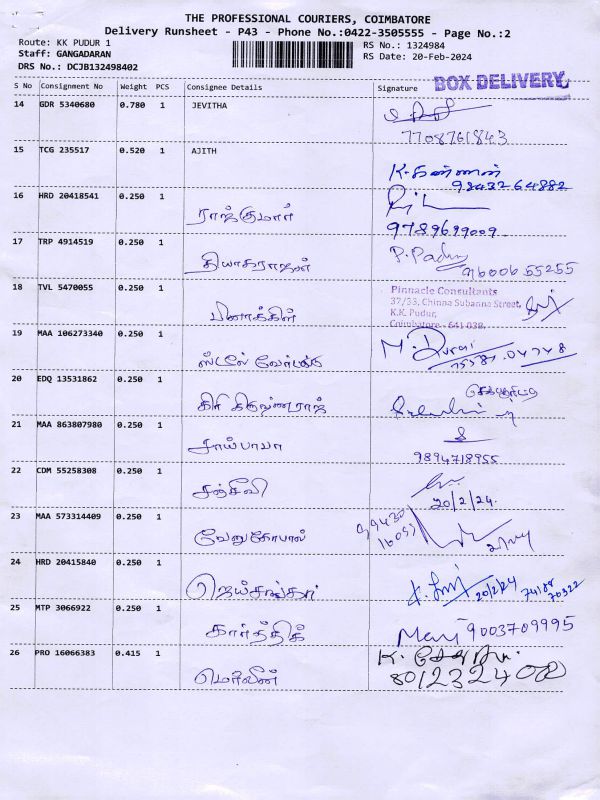 THE PROFESSIONAL COURIERS, COIMBATORE
Delivery Runsheet - P43 - Phone No.:0422-3505555 - Page No.:2
Route: KK PUDUR 1 RS No.: 1324984
Staff: GANGADARAN RS Date: 20-Feb-2024
DRS No.: DCJB132498402
BOX DELIVERY
S No Consignment No Weight PCS Consignee Details Signature
14 GDR 5340680 0.780 1 JEVITHA
7708761843
15 TCG 235517 0.520 1 AJITH
K. கண்ணன்
98432 64882
16 HRD 20418541 0.250 1 ராஜ்குமார்
9789699009
17 TRP 4914519 0.250 1 தியாகராஜன் P. Padm
96006 55255
18 TVL 5470055 0.250 1 பினாக்கிள்
Pinnacle Consultants
37/33, Chinna Subanna Street,
K.K. Pudur,
Coimbatore - 641 038.
19 MAA 106273340 0.250 1 ஸ்டீல் வேர்ல்டு M. Durai
75581 04748
20 EDQ 13531862 0.250 1 கிரி கிருஷ்ணராஜ்
21 MAA 863807980 0.250 1 சாய்பாபா
9894718955
22 CDM 55258308 0.250 1 சஞ்சீவி
20/2/24.
23 MAA 573314409 0.250 1 வேணுகோபால்
99430
16055
24 HRD 20415840 0.250 1 ஜெய்சங்கர் 20/2/24 74188
70322
25 MTP 3066922 0.250 1 கார்த்திக் Mani 9003709995
26 PRO 16066383 0.415 1 மெர்லின்
K.